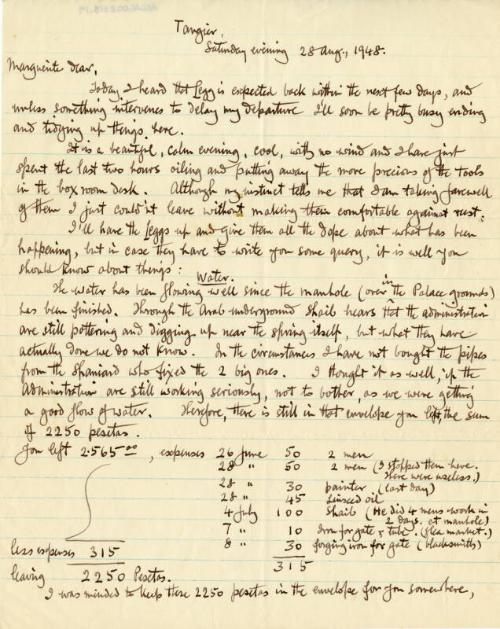 Tangier,
Saturday evening 28 Aug., 1948.
Marguerite dear,
Today I heard that Legg is expected back within the next few days, and
unless something intervenes to delay my departure I'll soon be pretty busy ending
and tidying up things here.
It is a beautiful, calm evening, cool, with no wind and I have just
spent the last two hours oiling and putting away the more precious of the tools
in the box room desk. Although my instinct tells me that I am taking farewell
of them I just couldn't leave without making them comfortable against rust.
I'll have the Leggs up and give them all the dope about what has been
happening, but in case they have to write you some query, it is well you
should know about things:
Water.
The water has been flowing well since the manhole (over in the Palace grounds)
has been finished. Through the Arab underground Shaib hears that the administration
are still pottering and digging up near the spring itself, but what they have
actually done we do not know. In the circumstances I have not bought the pipes
from the Spaniard who fixed the 2 big ones. I thought it as well, if the
Administration are still working seriously, not to bother, as we were getting
a good flow of water. Therefore, there is still in that envelope you left, the sum
of 2250 pesetas.
You left 2.565.00, expenses 26 June 50 2 men
28 " 50 2 men (I stopped them here.
There were useless.)
28 " 30 painter (last day)
28 " 45 linseed oil
4 July 100 Shaib (He did 4 mens work in
2 days. at manhole)
7 " 10 Iron for gate & tube. (flea market.)
less expenses 315 8 " 30 forging iron for gate (blacksmith)
leaving 2250 Pesetas. 315
I was minded to keep these 2250 pesetas in the envelope for you somewhere,